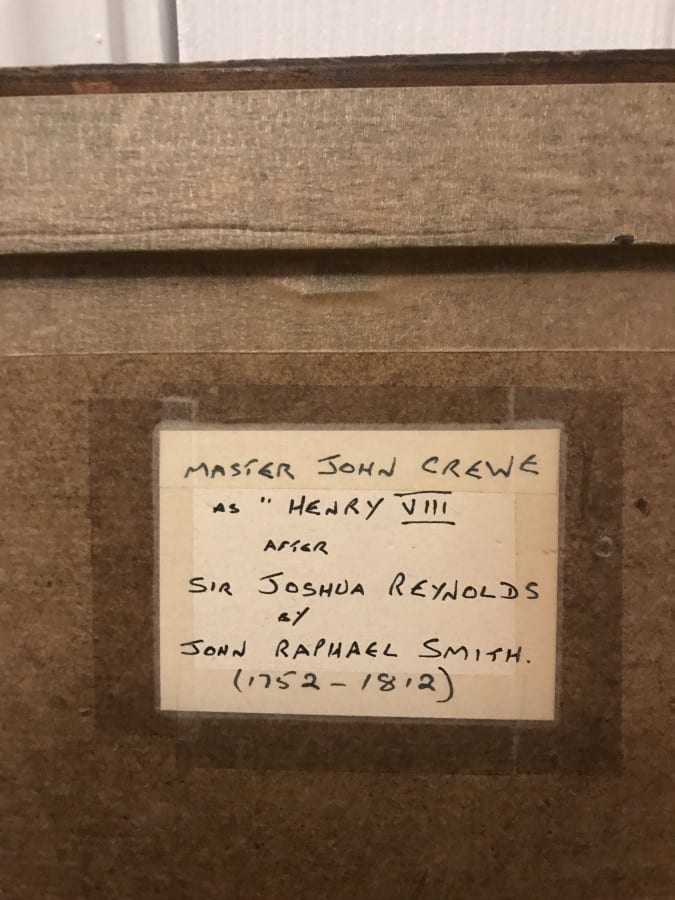 MASTER JOHN CREWE
AS " HENRY VIII
AFTER
SIR JOSHUA REYNOLDS
BY
JOHN RAPHAEL SMITH.
(1752 - 1812)